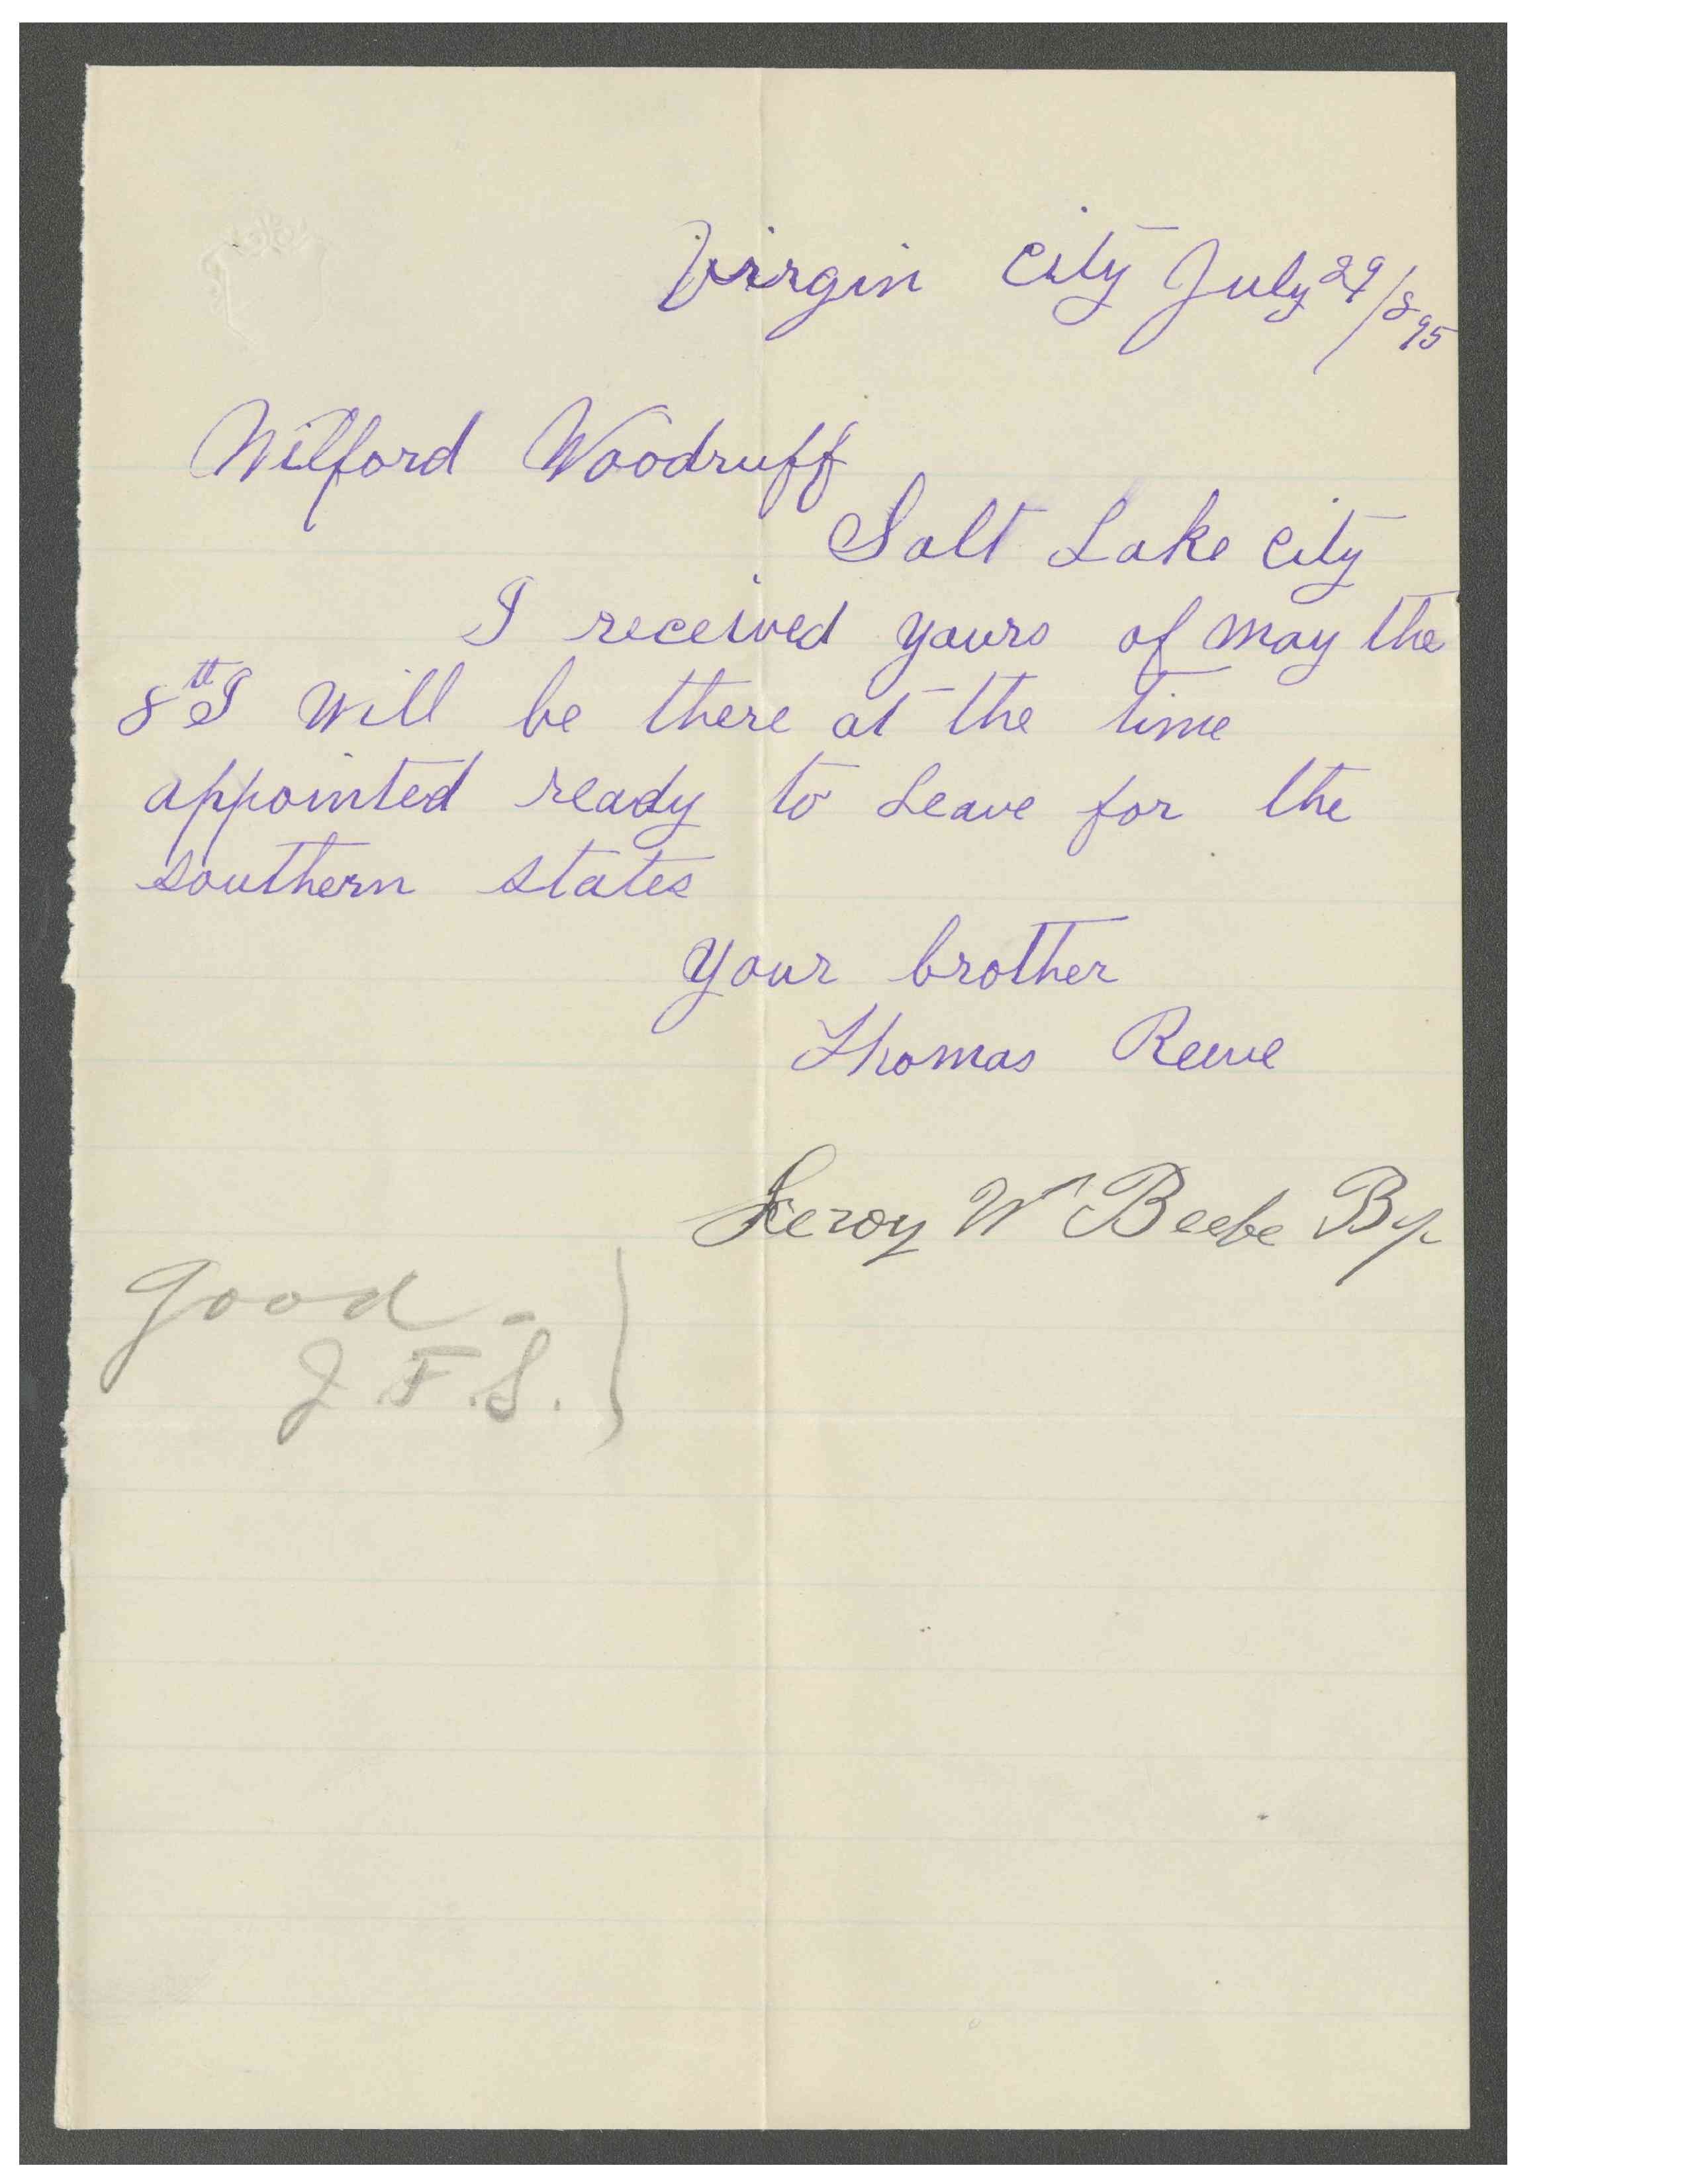 Virgin City July 29/895
Wilford Woodruff
Salt Lake City
I received yours of may the
8th I will be there at the time
appointed ready to Leave for the
southern states
Your brother
Thomas Reeve
Leroy W Beebe Bp
Good -
J. F. S. }